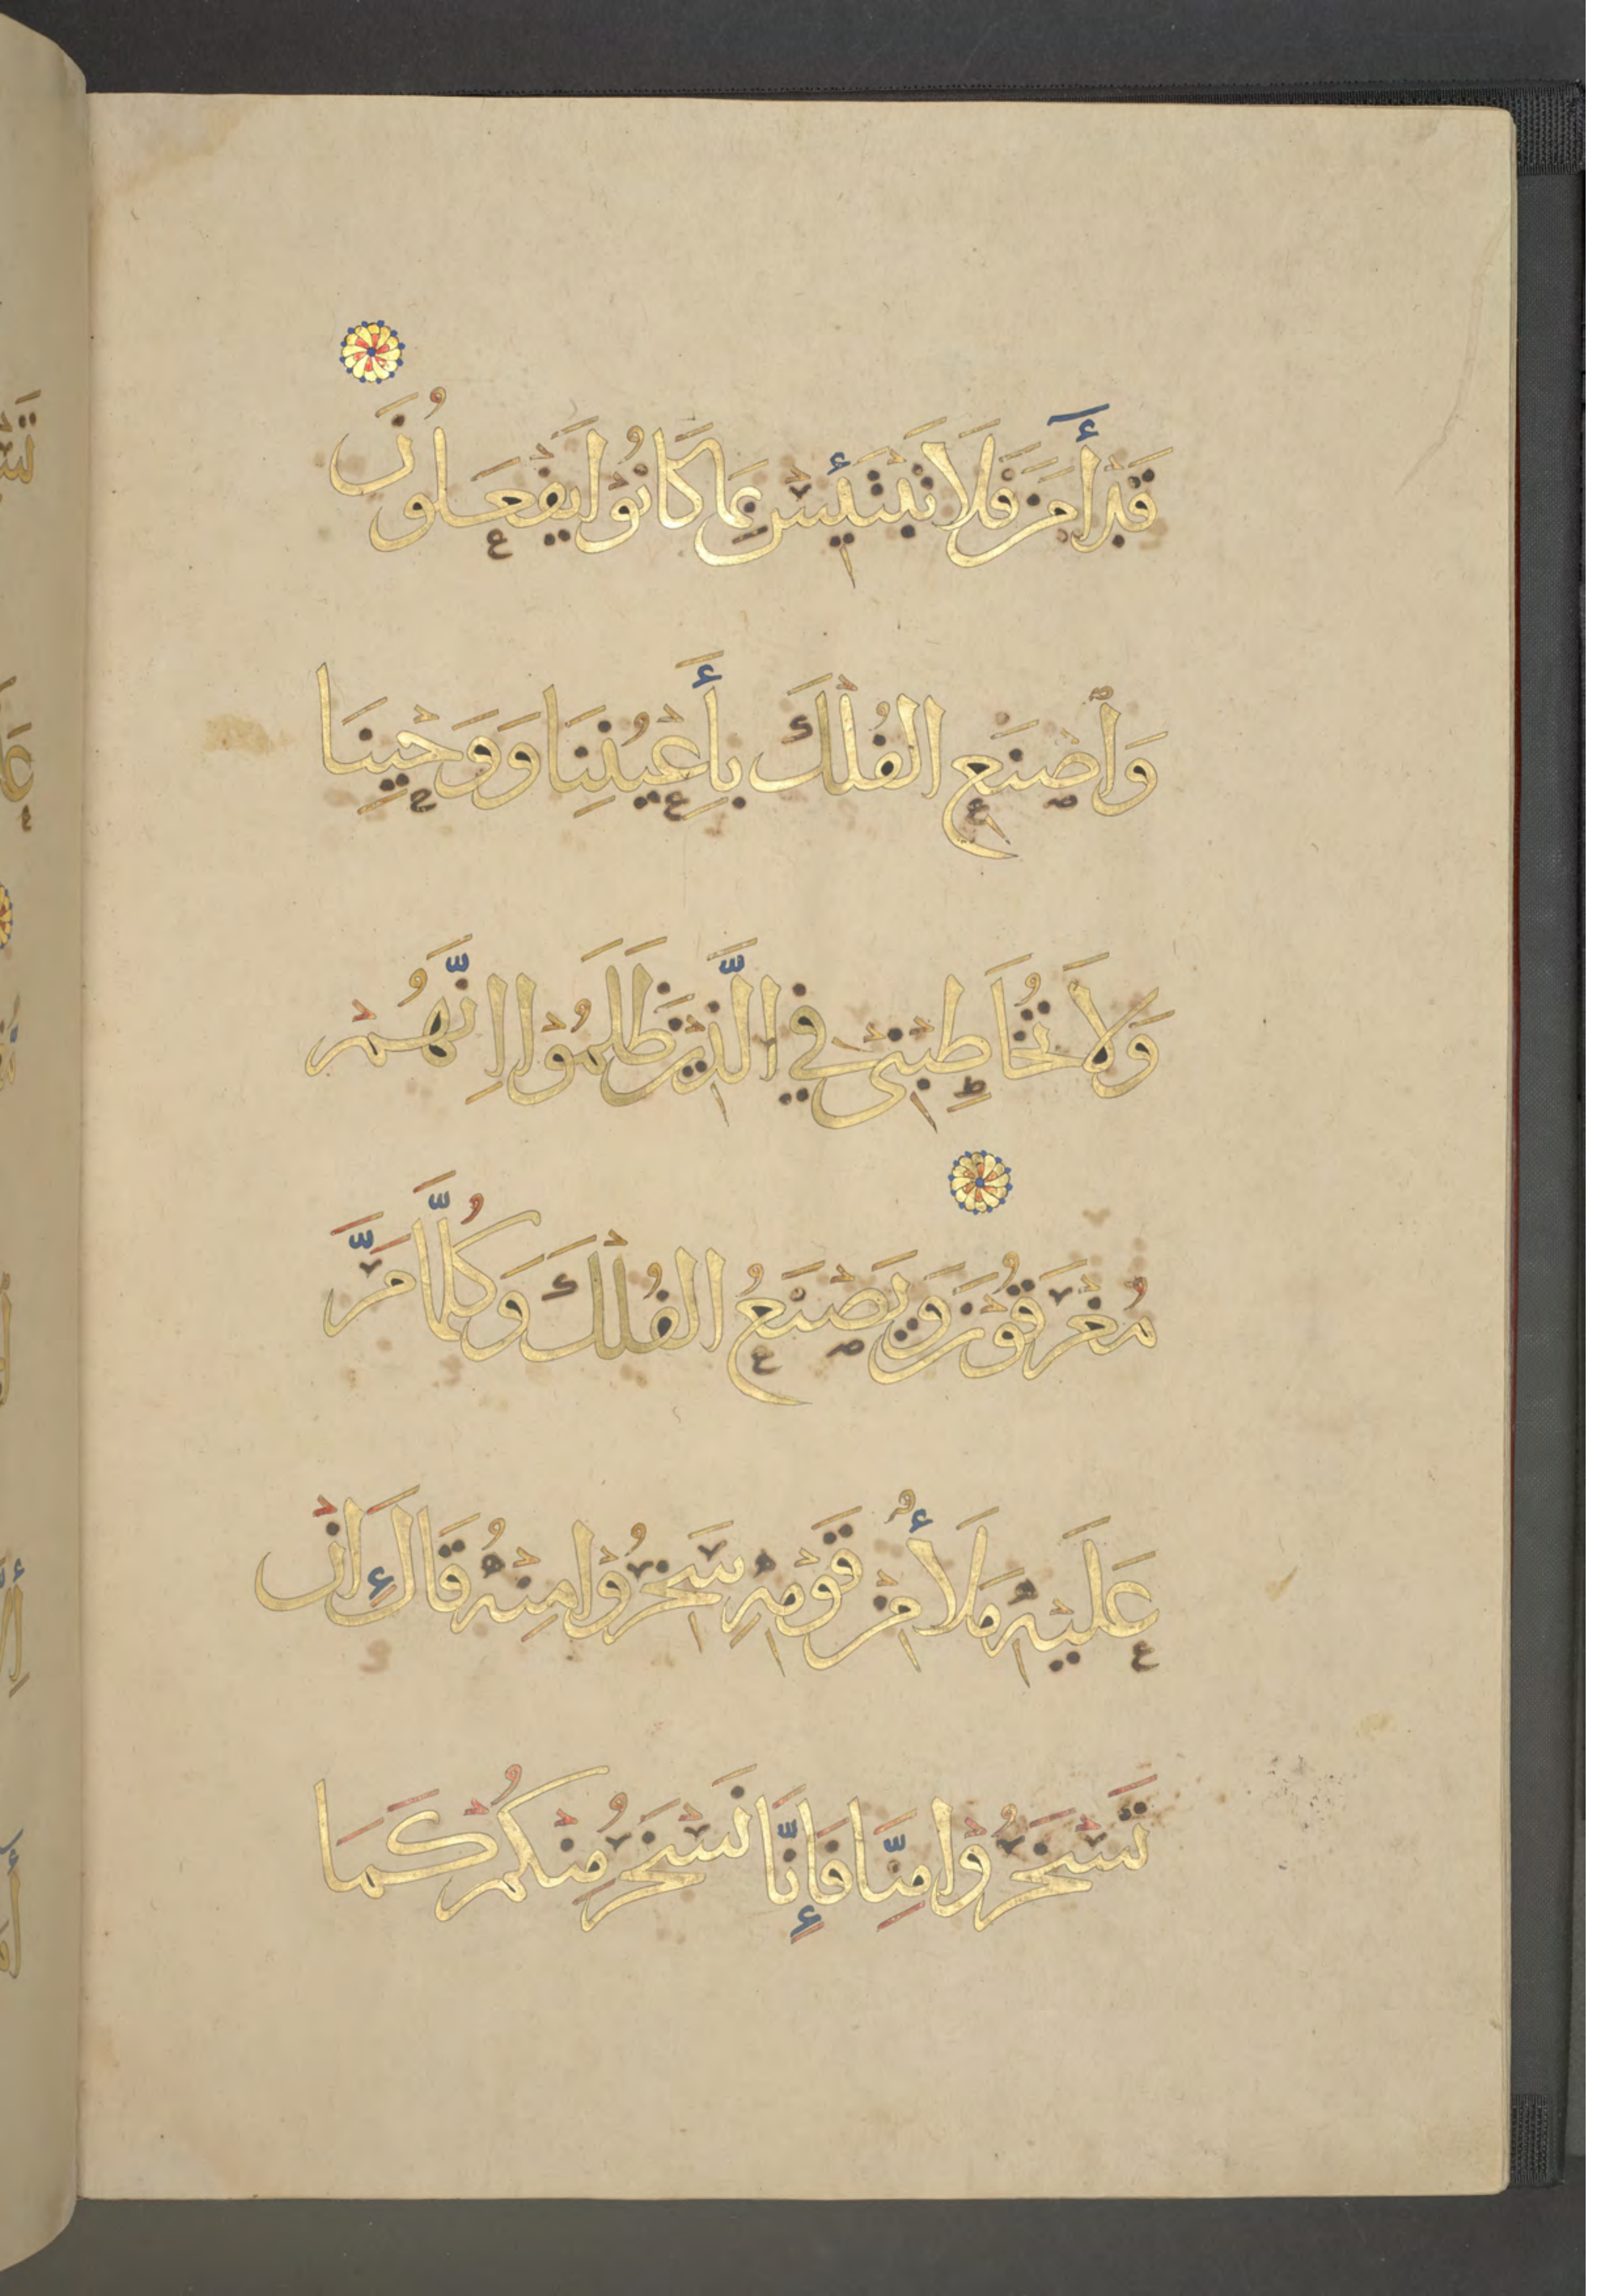 قَدْ أٰمَنَ فَلَا تَبْتَئِسْ بِمَا كَانُوْا يَفْعَلُونَ
وَاصْنَعِ الفُلْكَ بِأَعْيُنِنَا وَوَحْيِنَا
وَلَا تُخَاطِبْنِيْ فِي الَّذِيْنَ ظَلَمُوْا اِنَّهُمْ
مُغْرَقُوْنَ وَيَصْنَعُ الفُلْكَ وَكُلَّمَا مَرَّ
عَلَيْهِ مَلَأٌ مِنْ قَوْمِهِ سَخِرُوْا مِنْهُ قَالَ اِنْ
تَسْخَرُوْا مِنَّا فَإِنَّا نَسْخَرُ مِنْكُمْ كَمَا